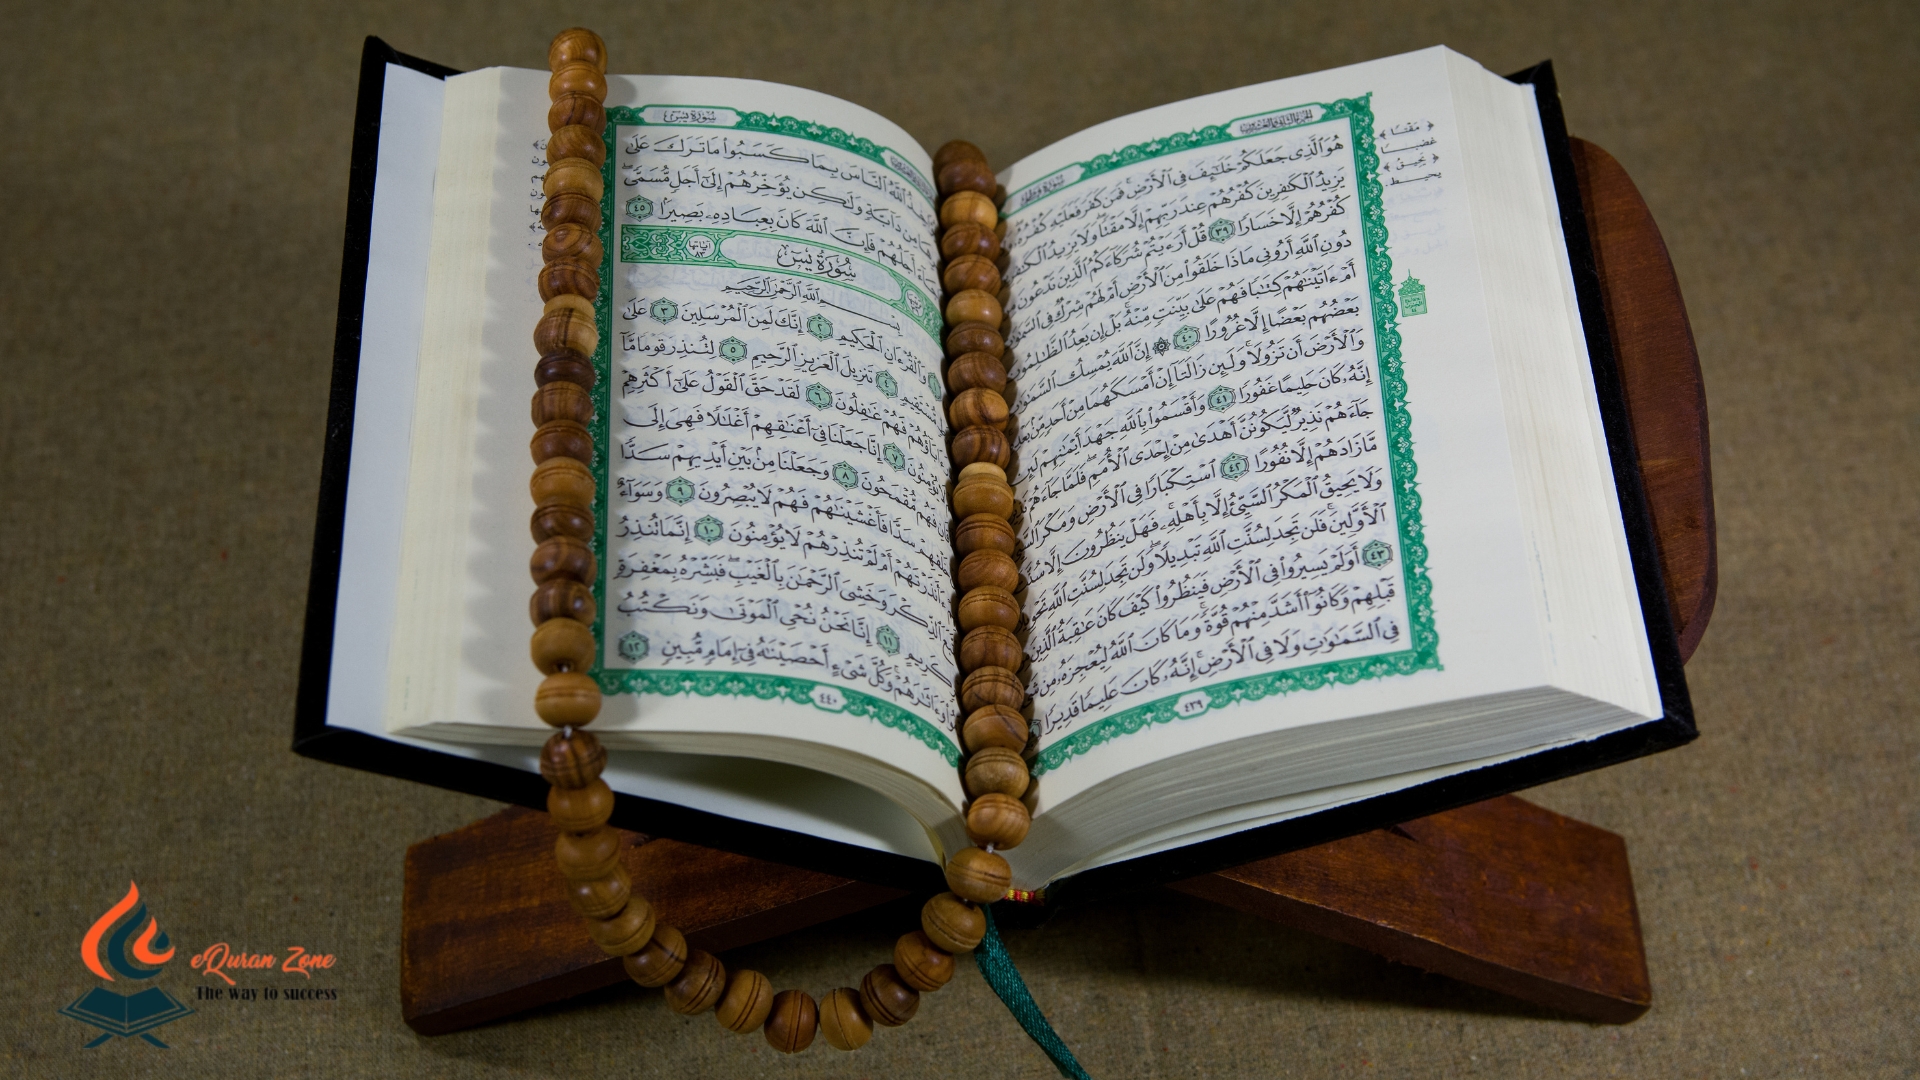 الجزء الثاني والعشرون
سورة فاطر
هُوَ الَّذِى جَعَلَكُمْ خَلَٰٓئِفَ فِى الْأَرْضِ فَمَن كَفَرَ فَعَلَيْهِ كُفْرُهُۥ
يَزِيدُ الْكَٰفِرِينَ كُفْرُهُمْ عِندَ رَبِّهِمْ إِلَّا مَقْتًا وَلَا يَزِيدُ
كُفْرُهُمْ إِلَّا خَسَارًا ٣٩ قُلْ أَرَءَيْتُمْ شُرَكَآءَكُمُ الَّذِينَ تَدْعُونَ
دُونِ اللَّهِ أَرُونِى مَاذَا خَلَقُوا مِنَ الْأَرْضِ أَمْ لَهُمْ شِرْكٌ فِى
أَمْ ءَاتَيْنَٰهُمْ كِتَٰبًا فَهُمْ عَلَىٰ بَيِّنَتٍ مِّنْهُ بَلْ إِن يَعِدُ الظَّٰلِمُونَ
بَعْضُهُم بَعْضًا إِلَّا غُرُورًا ٤٠ ۞ إِنَّ اللَّهَ يُمْسِكُ السَّمَٰوَٰتِ
وَالْأَرْضَ أَن تَزُولَا وَلَئِن زَالَتَآ إِنْ أَمْسَكَهُمَا مِنْ أَحَدٍ مِّنۢ
إِنَّهُۥ كَانَ حَلِيمًا غَفُورًا ٤١ وَأَقْسَمُوا بِاللَّهِ جَهْدَ أَيْمَٰنِهِمْ لَئِن
جَآءَهُمْ نَذِيرٌ لَّيَكُونُنَّ أَهْدَىٰ مِنْ إِحْدَى الْأُمَمِ فَلَمَّا جَآءَهُمْ
مَّا زَادَهُمْ إِلَّا نُفُورًا ٤٢ اسْتِكْبَارًا فِى الْأَرْضِ وَمَكْرَ
وَلَا يَحِيقُ الْمَكْرُ السَّيِّئُ إِلَّا بِأَهْلِهِۦ فَهَلْ يَنظُرُونَ إِلَّا
الْأَوَّلِينَ فَلَن تَجِدَ لِسُنَّتِ اللَّهِ تَبْدِيلًا وَلَن تَجِدَ لِسُنَّتِ اللَّهِ
٤٣ أَوَلَمْ يَسِيرُوا فِى الْأَرْضِ فَيَنظُرُوا كَيْفَ كَانَ عَٰقِبَةُ الَّذِينَ
قَبْلِهِمْ وَكَانُوٓا أَشَدَّ مِنْهُمْ قُوَّةً وَمَا كَانَ اللَّهُ لِيُعْجِزَهُۥ مِن
فِى السَّمَٰوَٰتِ وَلَا فِى الْأَرْضِ إِنَّهُۥ كَانَ عَلِيمًا قَدِيرًا
٤٣٩
مَقْتًا
غضبا
يَحِيقُ
يحيط
سورة يس
اللَّهُ النَّاسَ بِمَا كَسَبُوا مَا تَرَكَ عَلَىٰ
مِن دَآبَّةٍ وَلَٰكِن يُؤَخِّرُهُمْ إِلَىٰٓ أَجَلٍ مُّسَمًّى
أَجَلُهُمْ فَإِنَّ اللَّهَ كَانَ بِعِبَادِهِۦ بَصِيرًۢا ٤٥
سُورَةُ يسٓ
آياتها ٨٣
بِسْمِ اللَّهِ الرَّحْمَٰنِ الرَّحِيمِ
وَالْقُرْءَانِ الْحَكِيمِ ٢ إِنَّكَ لَمِنَ الْمُرْسَلِينَ ٣ عَلَىٰ
مُّسْتَقِيمٍ ٤ تَنزِيلَ الْعَزِيزِ الرَّحِيمِ ٥ لِتُنذِرَ قَوْمًا مَّآ
ءَابَآؤُهُمْ فَهُمْ غَٰفِلُونَ ٦ لَقَدْ حَقَّ الْقَوْلُ عَلَىٰٓ أَكْثَرِهِمْ
لَا يُؤْمِنُونَ ٧ إِنَّا جَعَلْنَا فِىٓ أَعْنَٰقِهِمْ أَغْلَٰلًا فَهِىَ إِلَى
فَهُم مُّقْمَحُونَ ٨ وَجَعَلْنَا مِنۢ بَيْنِ أَيْدِيهِمْ سَدًّا
سَدًّا فَأَغْشَيْنَٰهُمْ فَهُمْ لَا يُبْصِرُونَ ٩ وَسَوَآءٌ
ءَأَنذَرْتَهُمْ أَمْ لَمْ تُنذِرْهُمْ لَا يُؤْمِنُونَ ١٠ إِنَّمَا تُنذِرُ
الذِّكْرَ وَخَشِىَ الرَّحْمَٰنَ بِالْغَيْبِ فَبَشِّرْهُ بِمَغْفِرَةٍ
كَرِيمٍ ١١ إِنَّا نَحْنُ نُحْىِ الْمَوْتَىٰ وَنَكْتُبُ
وَءَاثَٰرَهُمْ وَكُلَّ شَىْءٍ أَحْصَيْنَٰهُ فِىٓ إِمَامٍ مُّبِينٍ ١٢
٤٤٠
eQuran Zone
The way to success